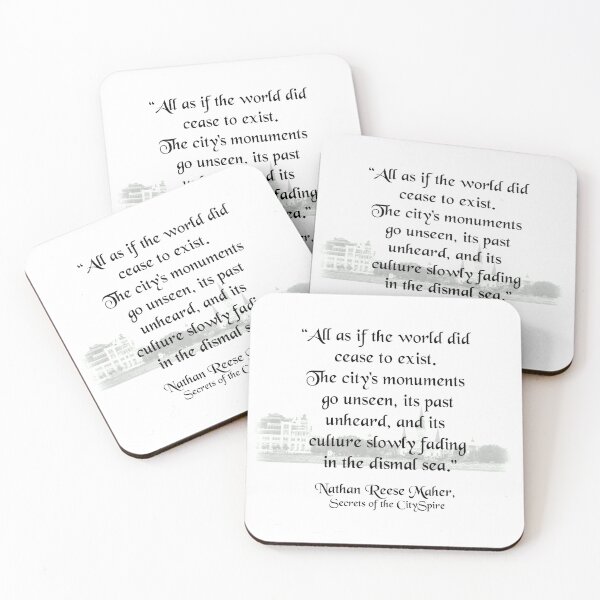 “All as if the world did
cease to exist.
The city's monuments
go unseen, its past
d its
fading
ea.”
er,
“All as if the world did
cease to exist.
The city's monuments
go unseen, its past
unheard, and its
culture slowly fading
in the dismal sea.”
“All as if the world did
cease to exist.
The city's monuments
go unseen, its past
unheard, and its
culture slowly fading
in the dismal sea.”
Nathan Reese
Secrets of the
“All as if the world did
cease to exist.
The city's monuments
go unseen, its past
unheard, and its
culture slowly fading
in the dismal sea.”
Nathan Reese Maher,
Secrets of the CitySpire